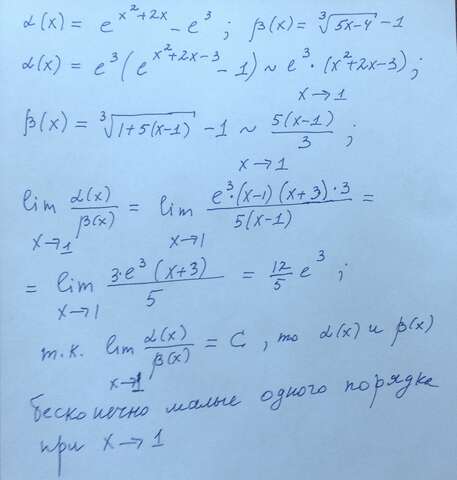 α(x) = e^{x²+2x} - e³ ; β(x) = ∛(5x-4) - 1
α(x) = e³(e^{x²+2x-3} - 1) ~ e³·(x²+2x-3);
x→1
β(x) = ∛(1+5(x-1)) - 1 ~ 5(x-1)/3 ;
x→1
lim α(x)/β(x) = lim e³·(x-1)(x+3)·3/5(x-1) =
x→1 x→1
= lim 3·e³(x+3)/5 = 12/5 e³ ;
x→1
т.к. lim α(x)/β(x) = C, то α(x) и β(x)
x→1
бесконечно малые одного порядка
при x→1